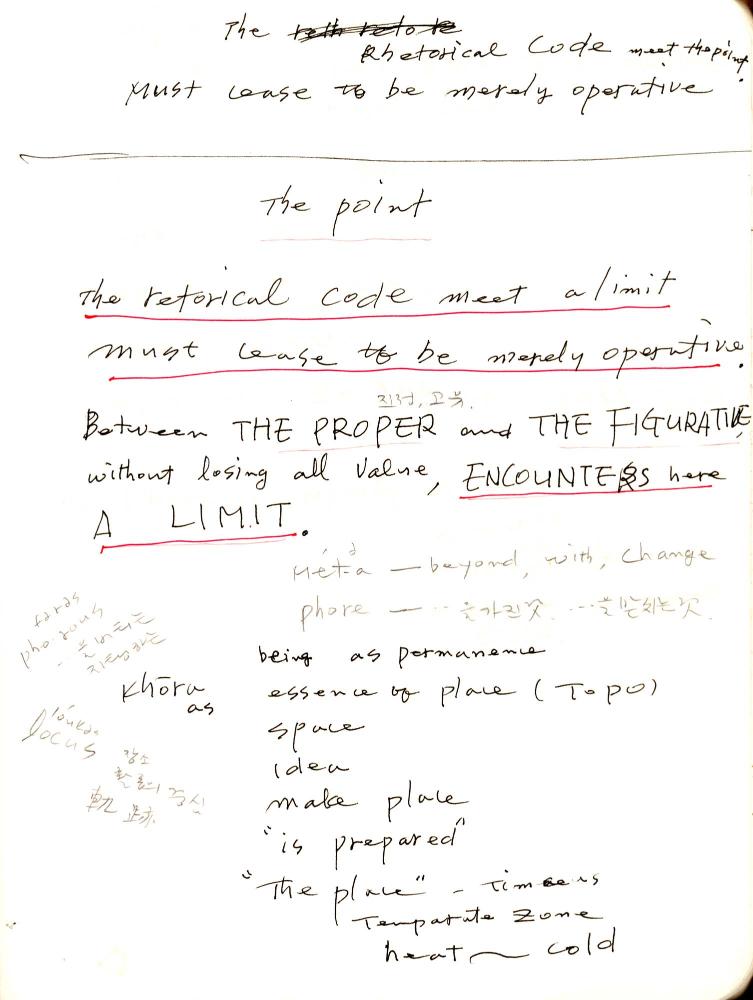 The
Rhetorical Code meet the point
Must cease to be merely operative
The point
The retorical code meet a limit
must cease to be merely operative.
진정, 고유.
Between THE PROPER and THE FIGURATIVE,
without losing all value, ENCOUNTERS here
A LIMIT.
Méta — beyond, with, change
phore — ·· 을 가진 것, ··· 을 받치는 것.
foras
pho·rous
being as permanence
Khōra as essence of place (Topo)
space
locus
장소
idea
활동의 중심
make place
軌 跡
"is prepared"
"The place" - Timaeus
Temparate Zone
heat ~ cold